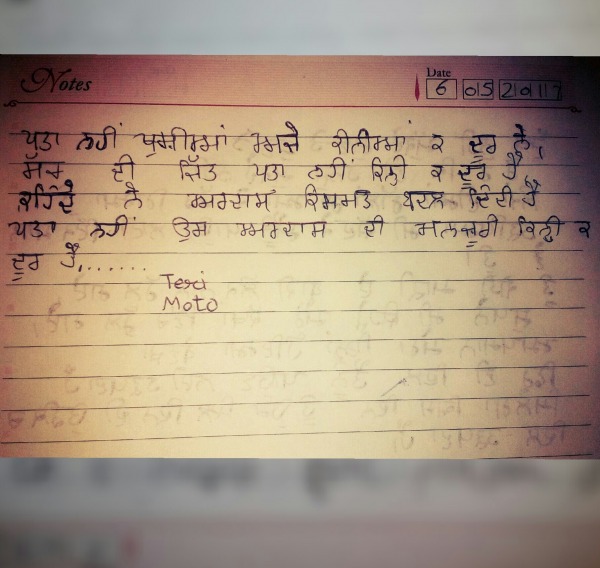 Notes
Date
6 05 2017
ਪਤਾ ਨਹੀਂ ਖੁਸ਼ੀਆਂ ਅਜੇ ਕੀਨੀਆਂ ਕ ਦੂਰ ਨੇ,
ਸੱਚ ਦੀ ਜਿੱਤ ਪਤਾ ਨਹੀਂ ਕਿਨੀ ਕ ਦੂਰ ਹੈ,
ਕਹਿੰਦੇ ਨੇ ਅਰਦਾਸ ਕਿਸਮਤ ਬਦਲ ਦਿੰਦੀ ਹੈ
ਪਤਾ ਨਹੀਂ ਉਸ ਅਰਦਾਸ ਦੀ ਮਨਜੂਰੀ ਕਿਨੀ ਕ
ਦੂਰ ਹੈ.......
Teri
Moto